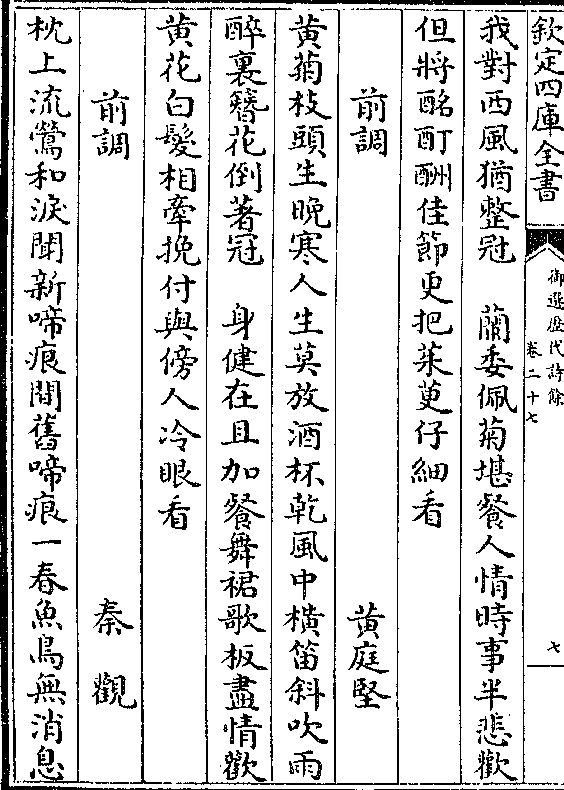 欽定四庫全書
御選歷代詩餘
卷二十七
七
我對西風猶整冠　蘭委佩菊堪餐人情時事半悲歡
但將酩酊酬佳節更把茱萸仔細看
前調　黃庭堅
黃菊枝頭生曉寒人生莫放酒杯乾風中橫笛斜吹雨
醉裏簪花倒著冠　身健在且加餐舞裙歌板盡情歡
黃花白髮相牽挽付與傍人冷眼看
前調　秦觀
枕上流鶯和淚聞新啼痕間舊啼痕一春魚鳥無消息